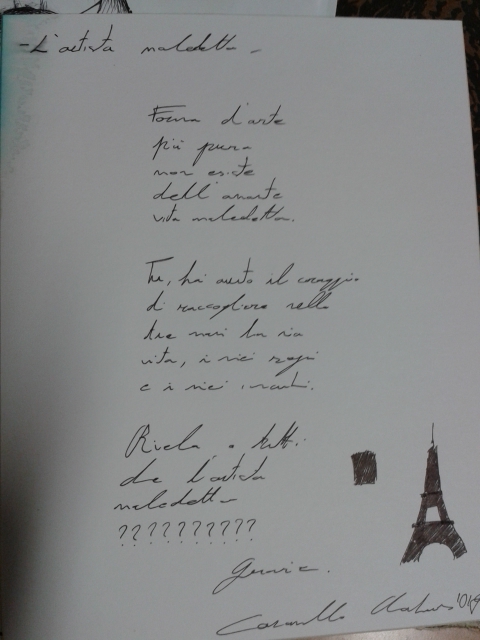 - L'artista maledetto -
Forma d'arte
più pura
non esiste
dell'amante
vita maledetta.
Tu, hai avuto il coraggio
di raccogliere nelle
tue mani la mia
vita, i miei sogni
e i miei incubi.
Rivela a tutti
che l'artista
maledetto
??????????
Grazie.